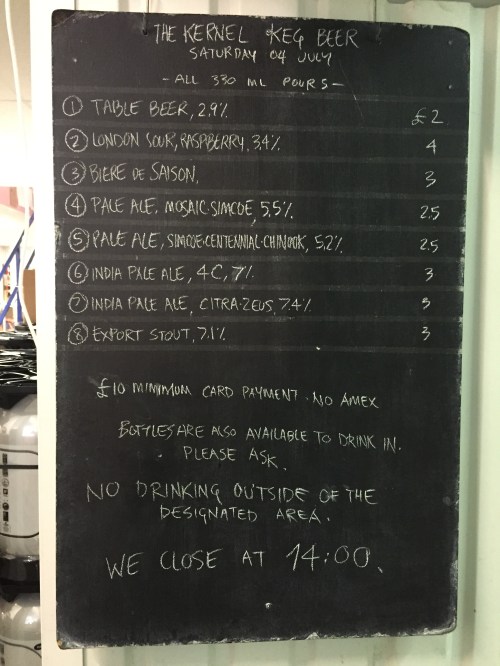 THE KERNEL KEG BEER
SATURDAY 04 JULY
- ALL 330 ML POURS -
1 TABLE BEER, 2.9% £2
2 LONDON SOUR, RASPBERRY, 3.4% 4
3 BIERE DE SAISON, 3
4 PALE ALE, MOSAIC·SIMCOE, 5.5% 2.5
5 PALE ALE, SIMCOE·CENTENNIAL·CHINOOK, 5.2% 2.5
6 INDIA PALE ALE, 4C, 7% 3
7 INDIA PALE ALE, CITRA·ZEUS, 7.4% 3
8 EXPORT STOUT, 7.1% 3
£10 MINIMUM CARD PAYMENT · NO AMEX
BOTTLES ARE ALSO AVAILABLE TO DRINK IN.
PLEASE ASK.
NO DRINKING OUTSIDE OF THE
DESIGNATED AREA.
WE CLOSE AT 14:00.